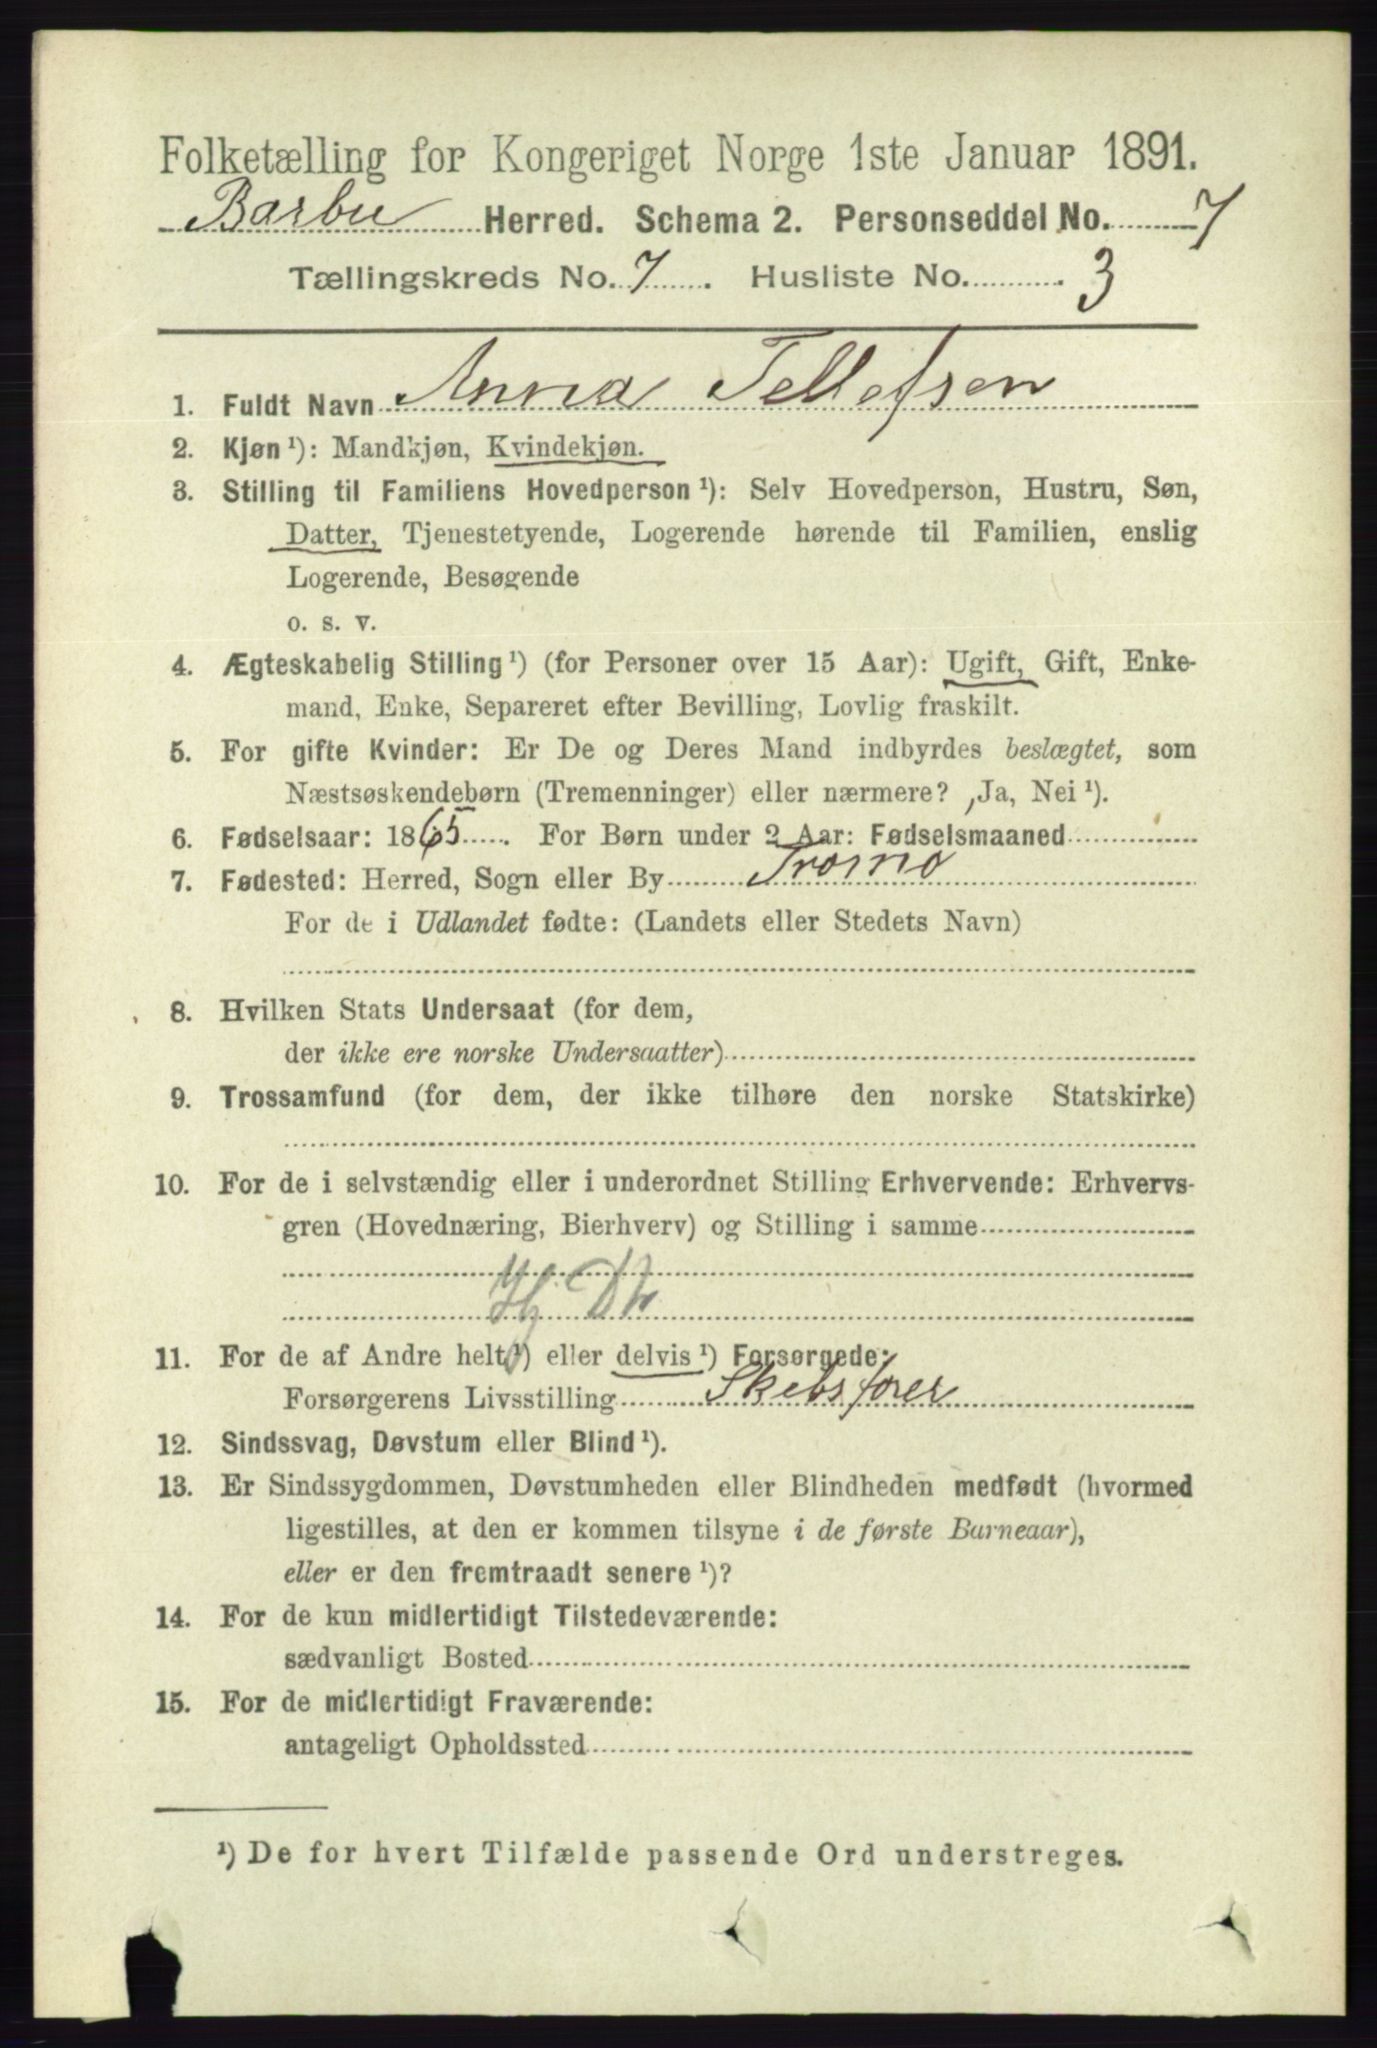 Folketælling for Kongeriget Norge 1ste Januar 1891.
Barbu Herred. Schema 2. Personseddel No. 7
Tællingskreds No. 7. Husliste No. 3
1. Fuldt Navn Anna Tellefsen
2. Kjøn ¹): Mandkjøn, Kvindekjøn.
3. Stilling til Familiens Hovedperson ¹): Selv Hovedperson, Hustru, Søn,
Datter, Tjenestetyende, Logerende hørende til Familien, enslig
Logerende, Besøgende
o. s. v.
4. Ægteskabelig Stilling ¹) (for Personer over 15 Aar): Ugift, Gift, Enke-
mand, Enke, Separeret efter Bevilling, Lovlig fraskilt.
5. For gifte Kvinder: Er De og Deres Mand indbyrdes beslægtet, som
Næstsøskendebørn (Tremenninger) eller nærmere? Ja, Nei ¹).
6. Fødselsaar: 1865. For Børn under 2 Aar: Fødselsmaaned
7. Fødested: Herred, Sogn eller By Tromø
For de i Udlandet fødte: (Landets eller Stedets Navn)
8. Hvilken Stats Undersaat (for dem,
der ikke ere norske Undersaatter)
9. Trossamfund (for dem, der ikke tilhøre den norske Statskirke)
10. For de i selvstændig eller i underordnet Stilling Erhvervende: Erhvervs-
gren (Hovednæring, Bierhverv) og Stilling i samme
11. For de af Andre helt ¹) eller delvis ¹) Forsørgede:
Forsørgerens Livsstilling Skebsfører
12. Sindssvag, Døvstum eller Blind ¹).
13. Er Sindssygdommen, Døvstumheden eller Blindheden medfødt (hvormed
ligestilles, at den er kommen tilsyne i de første Barneaar),
eller er den fremtraadt senere ¹)?
14. For de kun midlertidigt Tilstedeværende:
sædvanligt Bosted
15. For de midlertidigt Fraværende:
antageligt Opholdssted
¹) De for hvert Tilfælde passende Ord understreges.